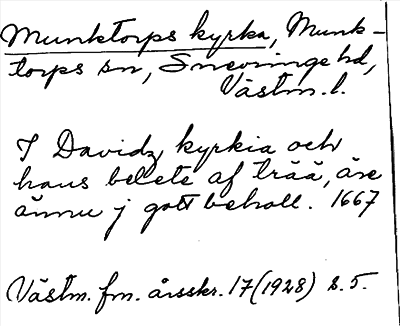 Munktorps kyrka, Munk-
torps sn, Snevringe hd,
Västm. l.
I Davidz kyrkia och
hans belete af trää, äre
ännu j gott behåll. 1667
Västm. fm. årsskr. 17 (1928) s. 5.